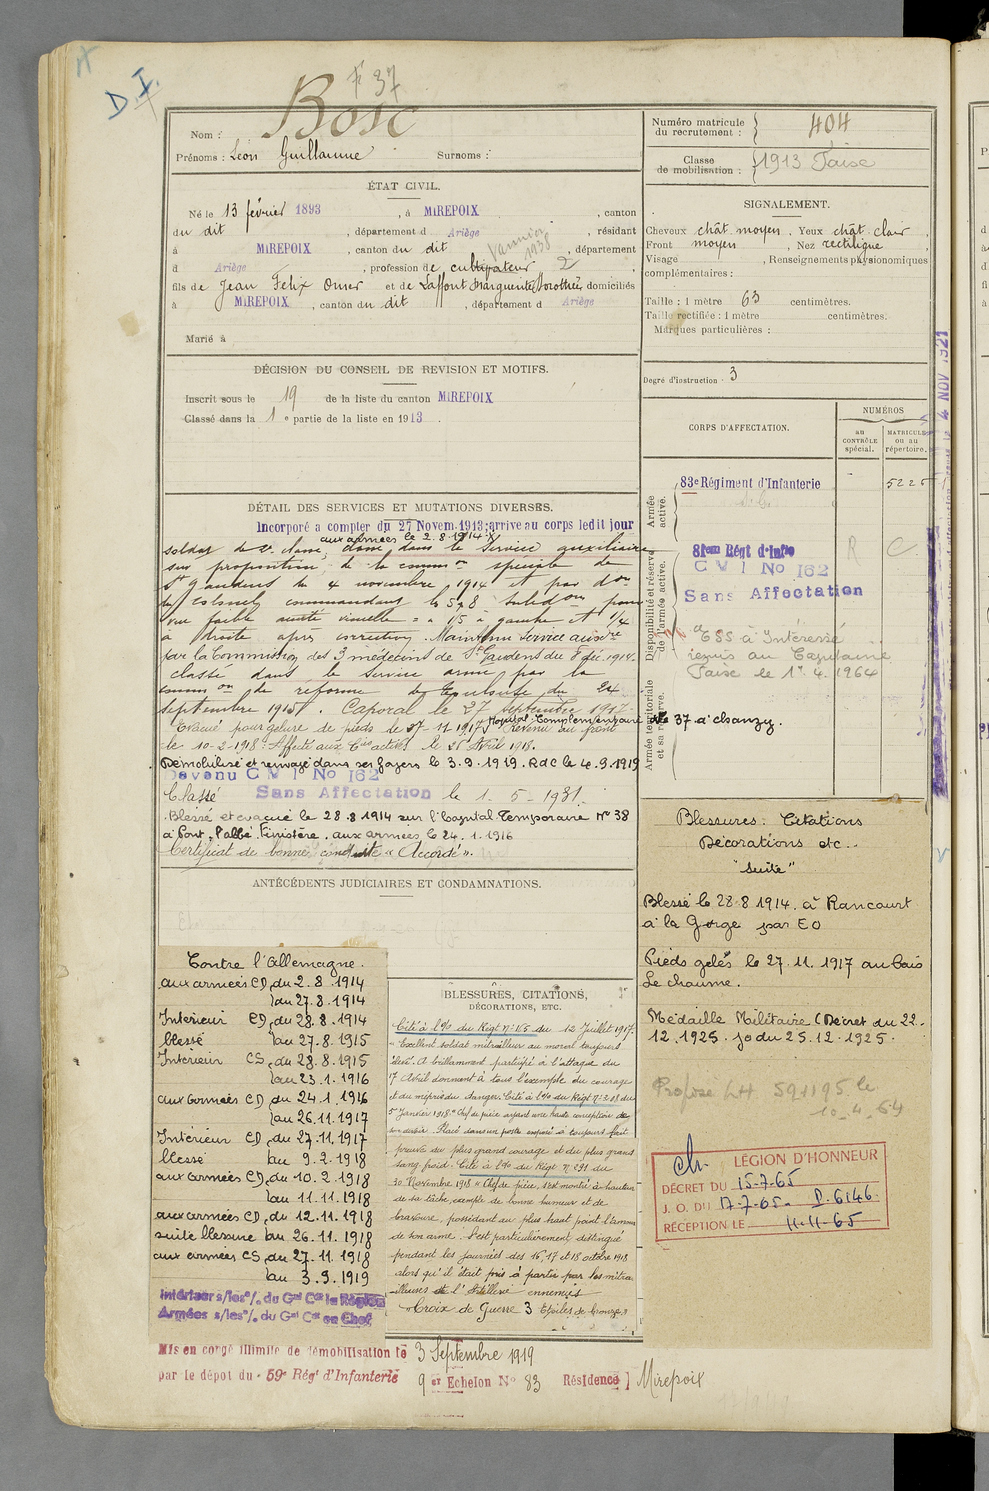 F 37
D I.
Nom : Bosc
Prénoms : Léon Guillaume Surnoms :
ÉTAT CIVIL.
Né le 13 février 1893, à MIREPOIX, canton
du dit, département d Ariège, résidant
à MIREPOIX, canton du dit, département
janvier 1938
d Ariège, profession de cultivateur 2
fils de Jean Felix Omer et de Laffont Marguerite, Dorothée, domiciliés
à MIREPOIX, canton du dit, département d Ariège
Marié à
DÉCISION DU CONSEIL DE REVISION ET MOTIFS.
Inscrit sous le 19 de la liste du canton MIREPOIX
Classé dans la 1e partie de la liste en 1913.
DÉTAIL DES SERVICES ET MUTATIONS DIVERSES.
Incorporé a compter du 27 Novem. 1913; arrive au corps ledit jour
aux armées le 2.8.1914.
soldat de 2e classe, classé dans le service auxiliaire
sur proposition de la common spéciale de
St Gaudens du 4 novembre 1914 et par don
du colonel commandant les 5 & 8 subdons pour
vue faible acuité visuelle = à 1/5 à gauche et 1/4
à droite après correction. Maintenu service auxre
par la Commission des 3 médecins de St Gaudens du 8 déc. 1914.
classé dans le service armé par la
commion de reforme de Toulouse du 24
septembre 1915. Caporal le 27 septembre 1917.
Evacué pour gelure de pieds le 27-11-1917 Hopital Complementaire No 37 à chanzy. Revenu au front
le 10-2-1918. Affecté aux Cies actives le 25 Avril 1918.
Démobilisé et renvoyé dans ses foyers le 3.9.1919. RdC le 4.9.1919
Devenu C V I No 162
Classé Sans Affectation le 1-5-1931.
Blessé et evacué le 28.8.1914 sur l'hopital Temporaire No 38
à Pont l'abbé Finistère. aux armées le 24.1.1916
Certificat de bonne conduite « Accordé ».
ANTÉCÉDENTS JUDICIAIRES ET CONDAMNATIONS.
Contre l'Allemagne.
aux armées CD, du 2.8.1914
au 27.8.1914
Interieur CD, du 28.8.1914
blessé au 27.8.1915
Interieur CS, du 28.8.1915
au 23.1.1916
aux armées CD, du 24.1.1916
au 26.11.1917
Intérieur CD, du 27.11.1917
blessé au 9.2.1918
aux armées CD, du 10.2.1918
au 11.11.1918
aux armées CD, du 12.11.1918
suite blessure au 26.11.1918
aux armées CS, du 27.11.1918
au 3.9.1919
Intérieur s/les o/. du Gal Ct la Région
Armées s/les o/. du Gal Ct en Chef
BLESSURES, CITATIONS,
DÉCORATIONS, ETC.
Cité à l'O/ du Régt No 165 du 12 Juillet 1917.
« Excellent soldat mitrailleur au moral toujours
élevé. A brillamment participé à l'attaque du
17 Avril donnant à tous l'exemple du courage
et du mépris du danger. Cité à l'O/ du Régt No 308 du
5 Janvier 1918 « Chef de pièce ayant une haute conception de
son devoir. Placé dans un poste exposé a toujours fait
preuve du plus grand courage et du plus grand
sang froid. Cité à l'O/ du Régt No 291 du
30 Novembre 1918 « Chef de pièce, s'est montré à hauteur
de sa tâche, exemple de bonne humeur et de
bravoure, possédant au plus haut point l'amour
de son arme. S'est particulièrement distingué
pendant les journées des 16, 17 et 18 octobre 1918
alors qu'il était pris à partie par les mitrail
leuses et l'artillerie ennemies
Croix de Guerre 3 Etoiles de bronze »
Mis en congé illimité de démobilisation le 3 Septembre 1919
par le dépot du 59e Régt d'Infanterie
9 er Echelon No 83 Résidence Mirepoix
Numéro matricule
du recrutement : 404
Classe
de mobilisation : 1913 Taise
SIGNALEMENT.
Cheveux chât. moyen, Yeux chât. clair,
Front moyen, Nez rectiligne,
Visage, Renseignements physionomiques
complémentaires :
Taille : 1 mètre 63 centimètres.
Taille rectifiée : 1 mètre centimètres.
Marques particulières :
Degré d'instruction : 3
CORPS D'AFFECTATION.
NUMÉROS
au
CONTRÔLE
spécial.
MATRICULE
ou au
répertoire.
Armée
active.
83e Régiment d'Infanterie 5225
Disponibilité et réserve
de l'armée active.
81em Regt d'Infie R C.
C V I No 162
Sans Affectation
ESS à Intéressé
requis au Capitaine
Taise le 1r 4. 1964
Armée territoriale
et sa réserve.
4 NOV 1921
Blessures. Citations
Décorations etc..
"Suite"
Blessé le 28.8.1914. à Rancourt
à la Gorge par EO
Pieds gelés le 27.11.1917 au bois
Le chaume.
Médaille Militaire (Décret du 22.
12.1925. jo du 25.12.1925.
Proposé LH 591195 le
10-4-64
LÉGION D'HONNEUR
DÉCRET DU 15-7-65
J. O. DU 17-7-65. P. 6146.
RÉCEPTION LE 11-11-65